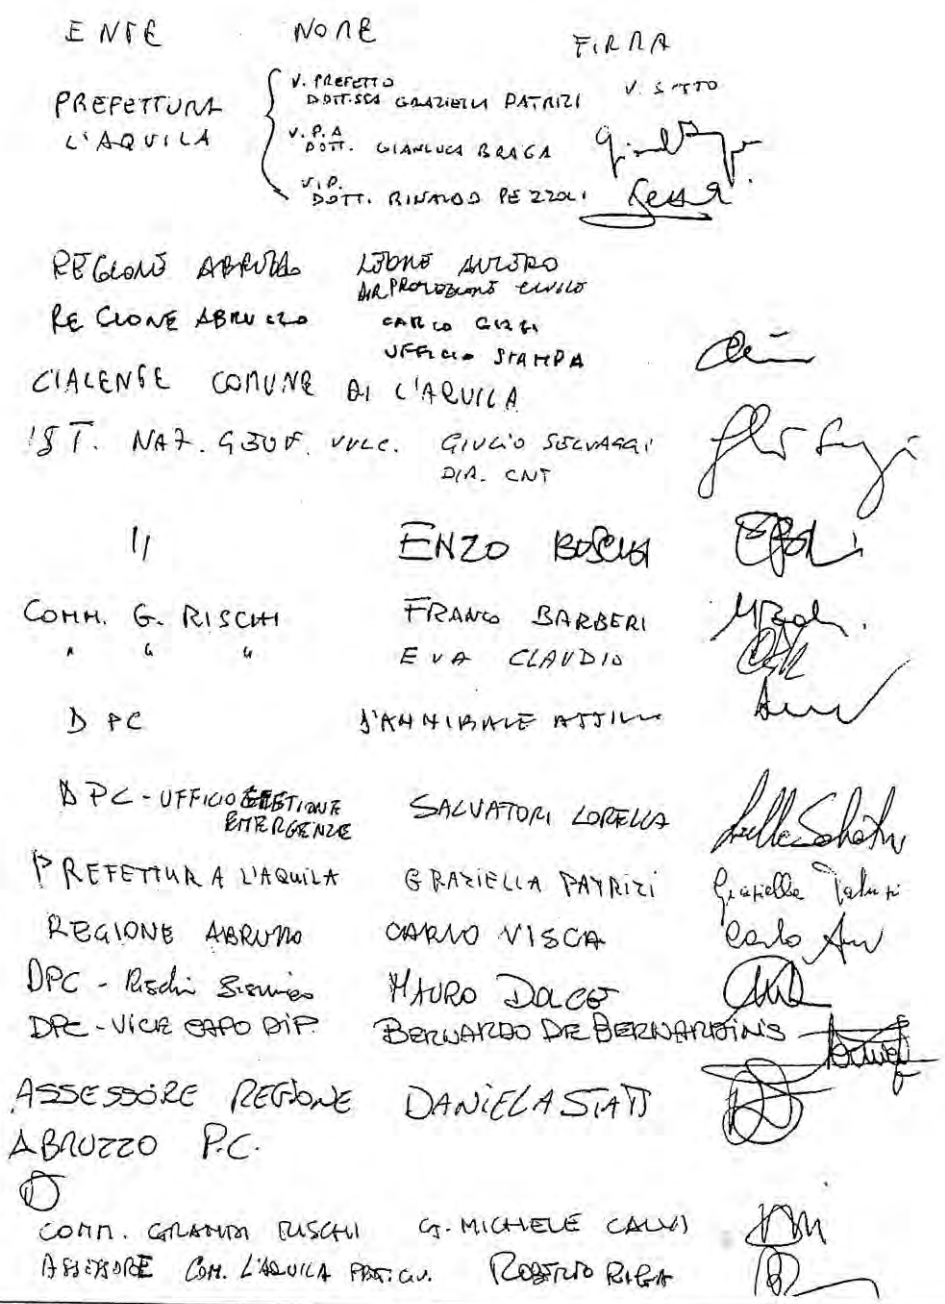 ENTE NOME FIRMA
PREFETTURA L'AQUILA
V. PREFETTO
DOTT.SSA GRAZIELLA PATRIZI V. SOTTO
V.P.A
DOTT. GIANLUCA BRAGA
V.P.
DOTT. RINALDO PEZZOLI
REGIONE ABRUZZO LEONE ALTERO
DIR PROTEZIONE CIVILE
REGIONE ABRUZZO CARLO GIZZI
UFFICIO STAMPA
CIALENTE COMUNE DI L'AQUILA
IST. NAZ. GEOF. VULC. GIULIO SELVAGGI
DIR. CNT
" ENZO BOSCHI
COMM. G. RISCHI FRANCO BARBERI
" " " EVA CLAUDIO
DPC D'ANNIBALE ATTILIO
DPC - UFFICIO GESTIONE SALVATORI LORELLA
EMERGENZE
PREFETTURA L'AQUILA GRAZIELLA PATRIZI Graziella Patrizi
REGIONE ABRUZZO CARLO VISCA Carlo
DPC - Rischio Sismico MAURO DOLCE
DPC - VICE CAPO DIP. BERNARDO DE BERNARDINIS
ASSESSORE REGIONE DANIELA STATI
ABRUZZO P.C.
COMM. GRANDI RISCHI G. MICHELE CALVI
ASSESSORE COM. L'AQUILA ROBERTO RIGA